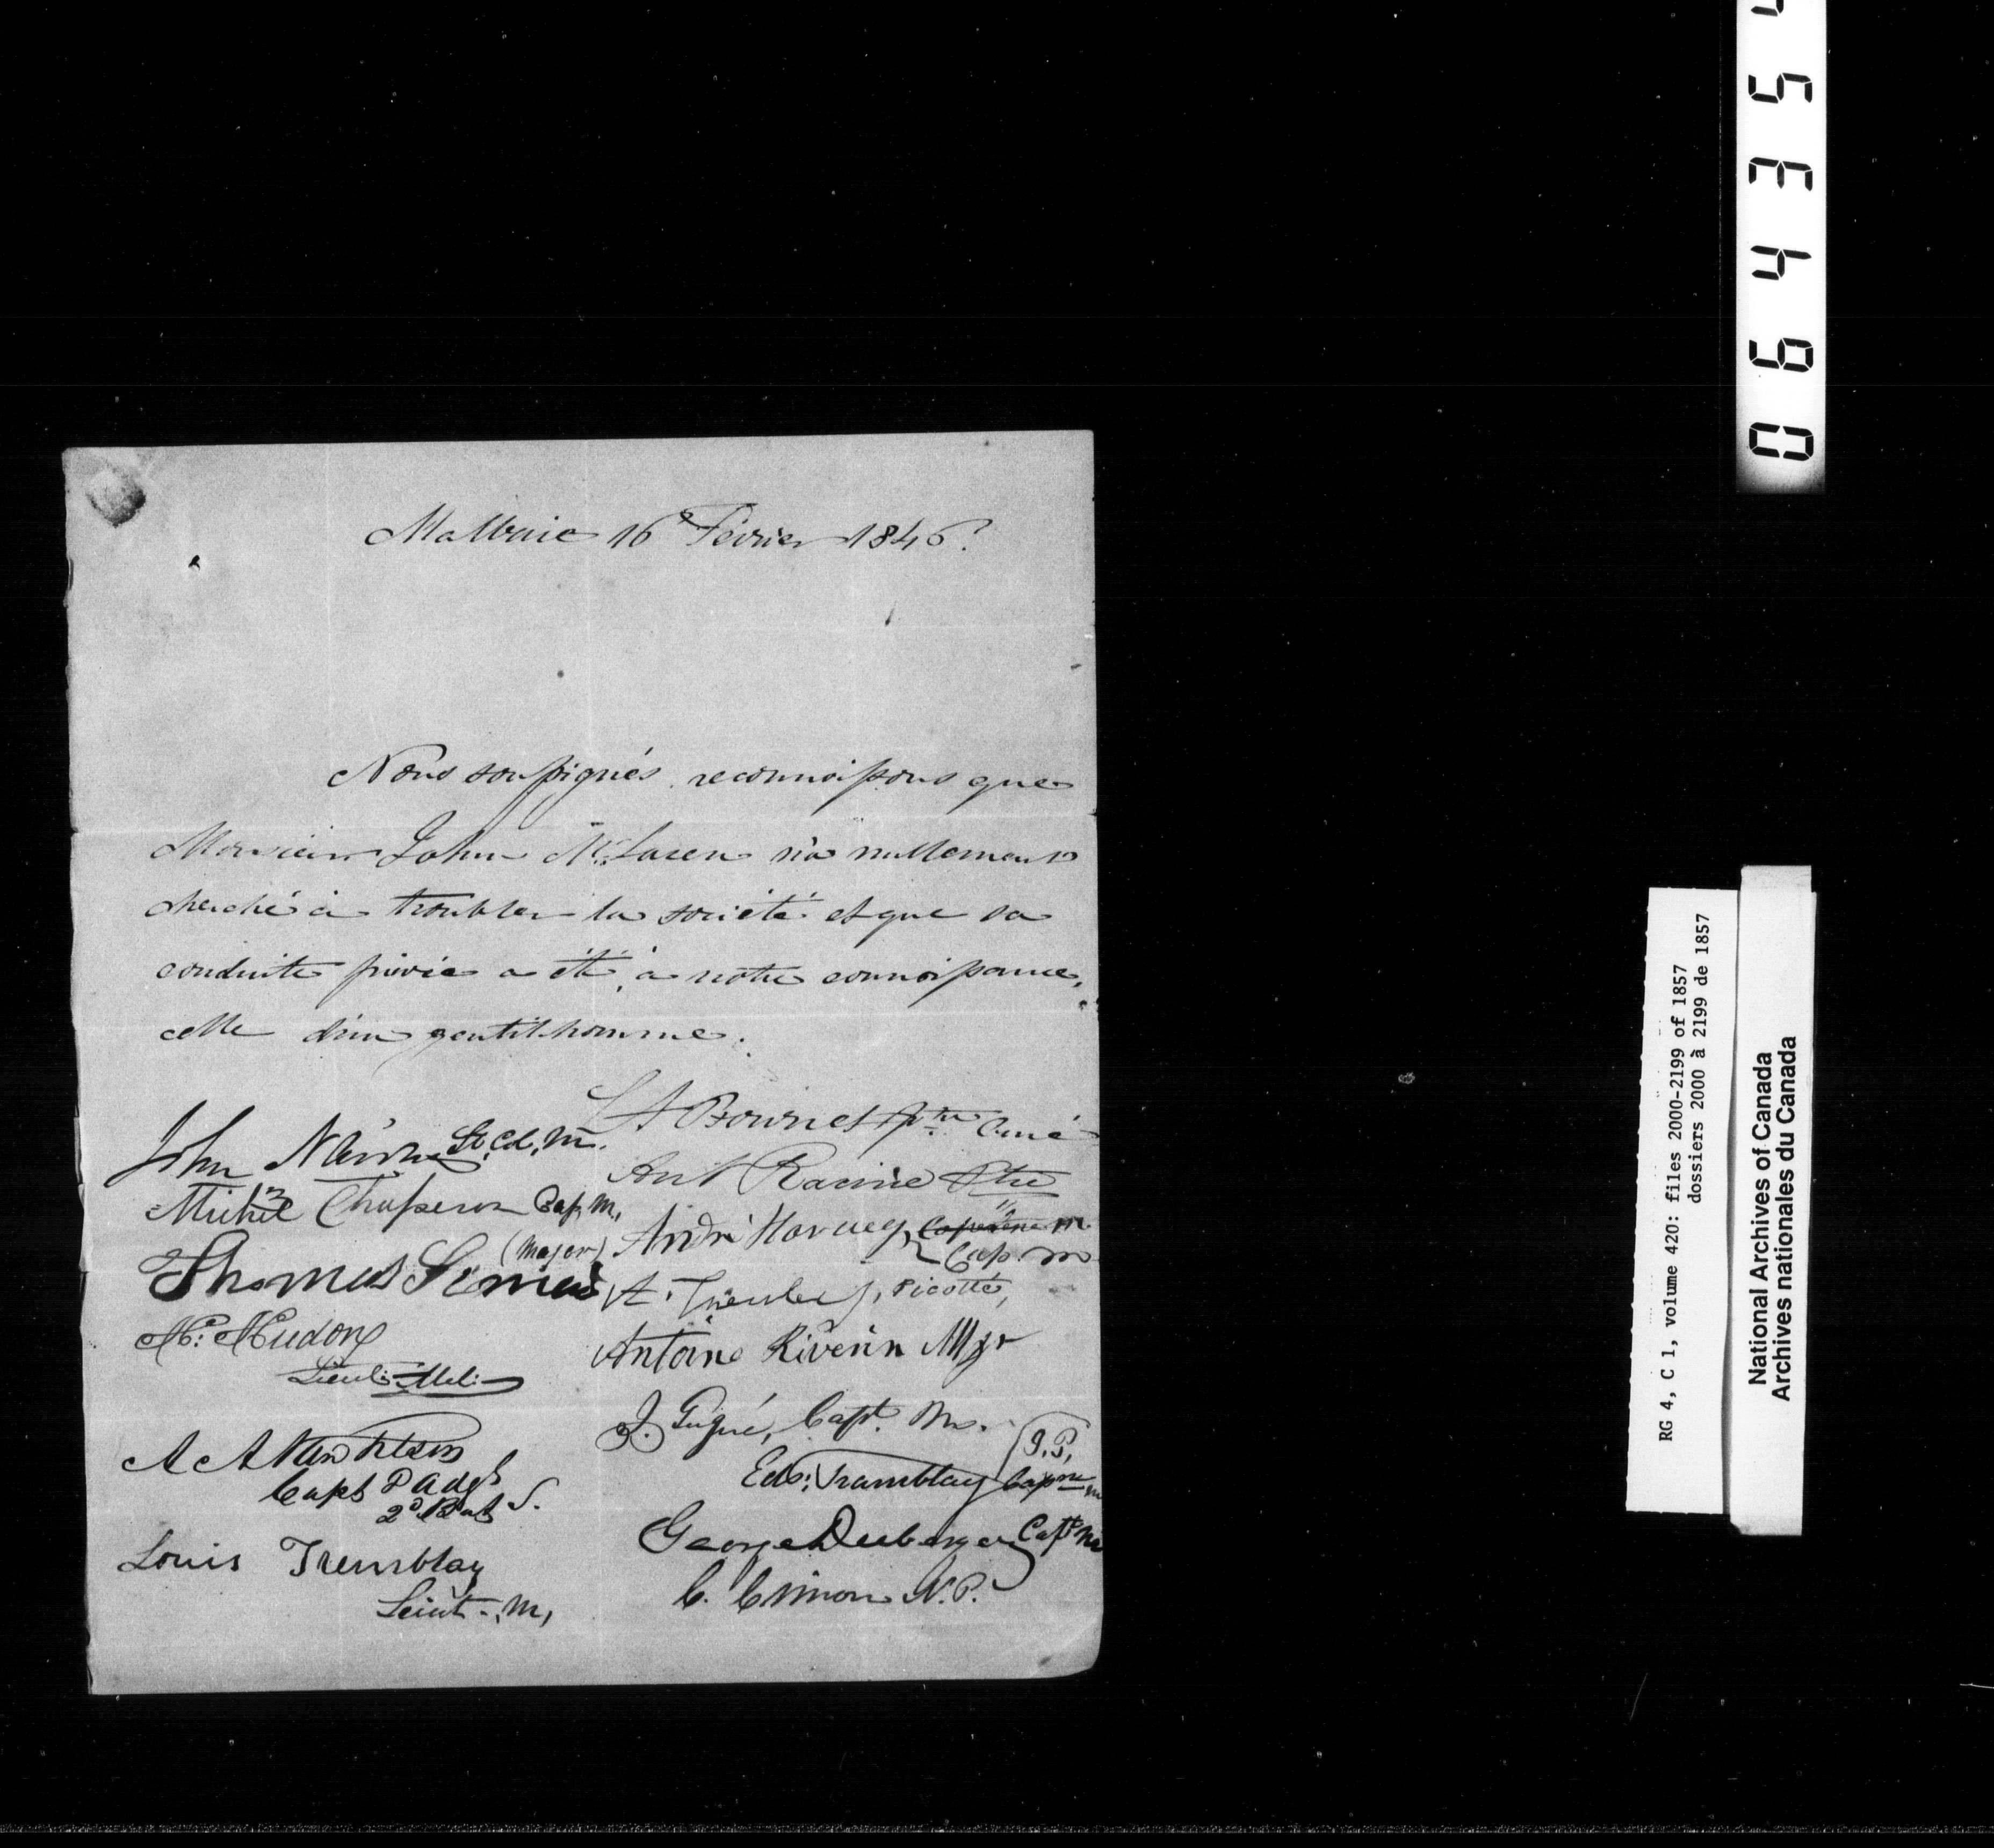 Malbaie 16e Février 1846.
Nous soussignés reconnoissons que
Monsieur John McLaren n'a nullement
cherché à troubler la société et que sa
conduite privée a été, à notre connoissance,
celle d'un gentilhomme.
John Nairne Lt. Col. M.
Michel Chaperon Cap. M.
Thomas Simard (Major)
H. Hudon
Lieut. Mil.
Capt & Adgt
2d Bat S.
Louis Tremblay
Lieut. M,
Bourret ptre Curé
Ant Racine Ptre
André Harvey, Capitaine m
Cap. m
Picotté,
Antoine Riverin Mjr
J. Gagné, Capt. M.
J. P.
Ed: Tremblay Capne m
George Duberger Capt M
C. Cimon N.P.
0 6 4 3 5 4
RG 4, C 1, volume 420: files 2000-2199 of 1857
dossiers 2000 à 2199 de 1857
National Archives of Canada
Archives nationales du Canada